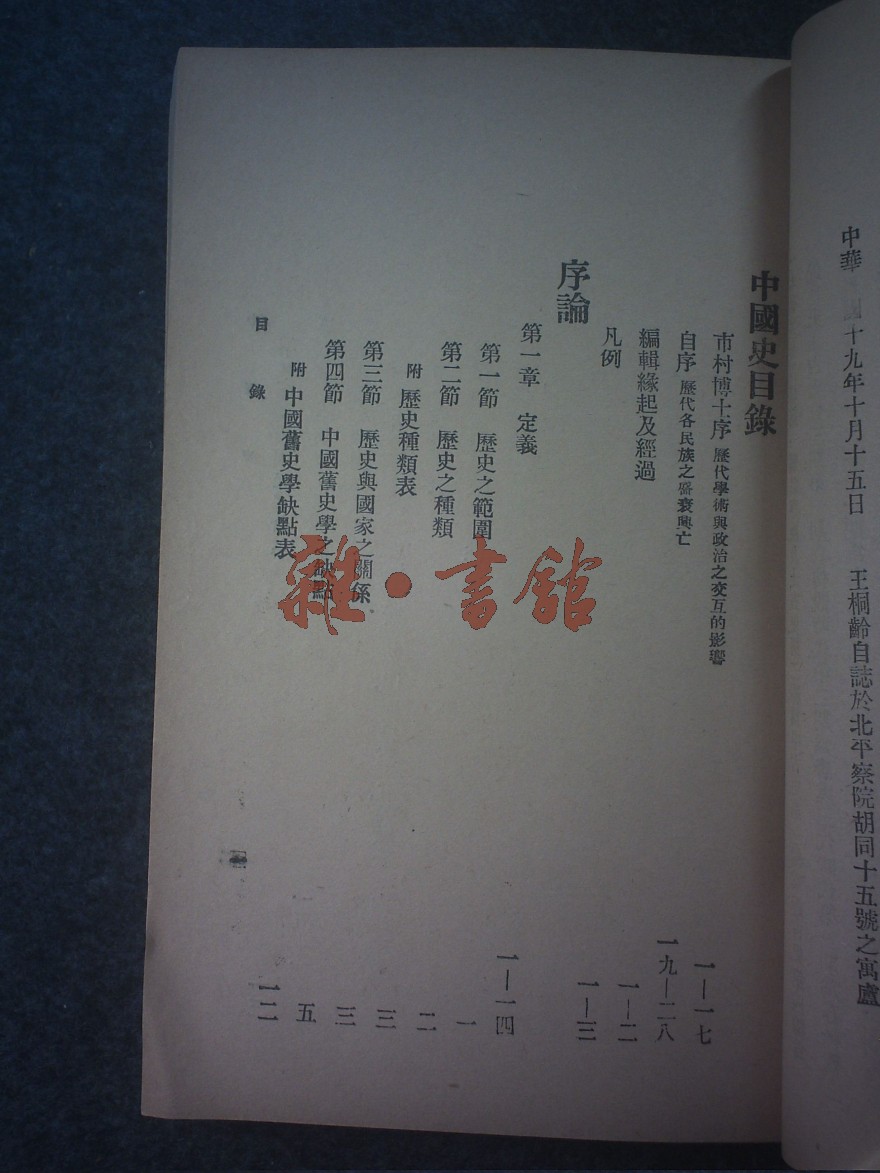 中華 國十九年十月十五日 王桐齡自誌於北平察院胡同十五號之寓廬
中國史目錄
市村博士序 歷代學術與政治之交互的影響 一－一七
自序 歷代各民族之盛衰興亡 一九－二八
編輯緣起及經過 一－二
凡例 一－三
序論
第一章 定義 一－一四
第一節 歷史之範圍 一
第二節 歷史之種類 二
附 歷史種類表 三
第三節 歷史與國家之關係 三
第四節 中國舊史學之缺點 五
附 中國舊史學缺點表 一二
目錄
雜·書館